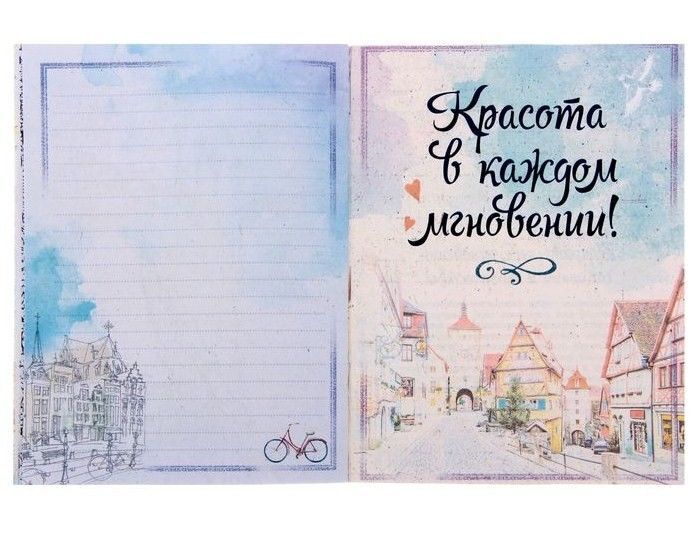 Красота
в каждом
мгновении!